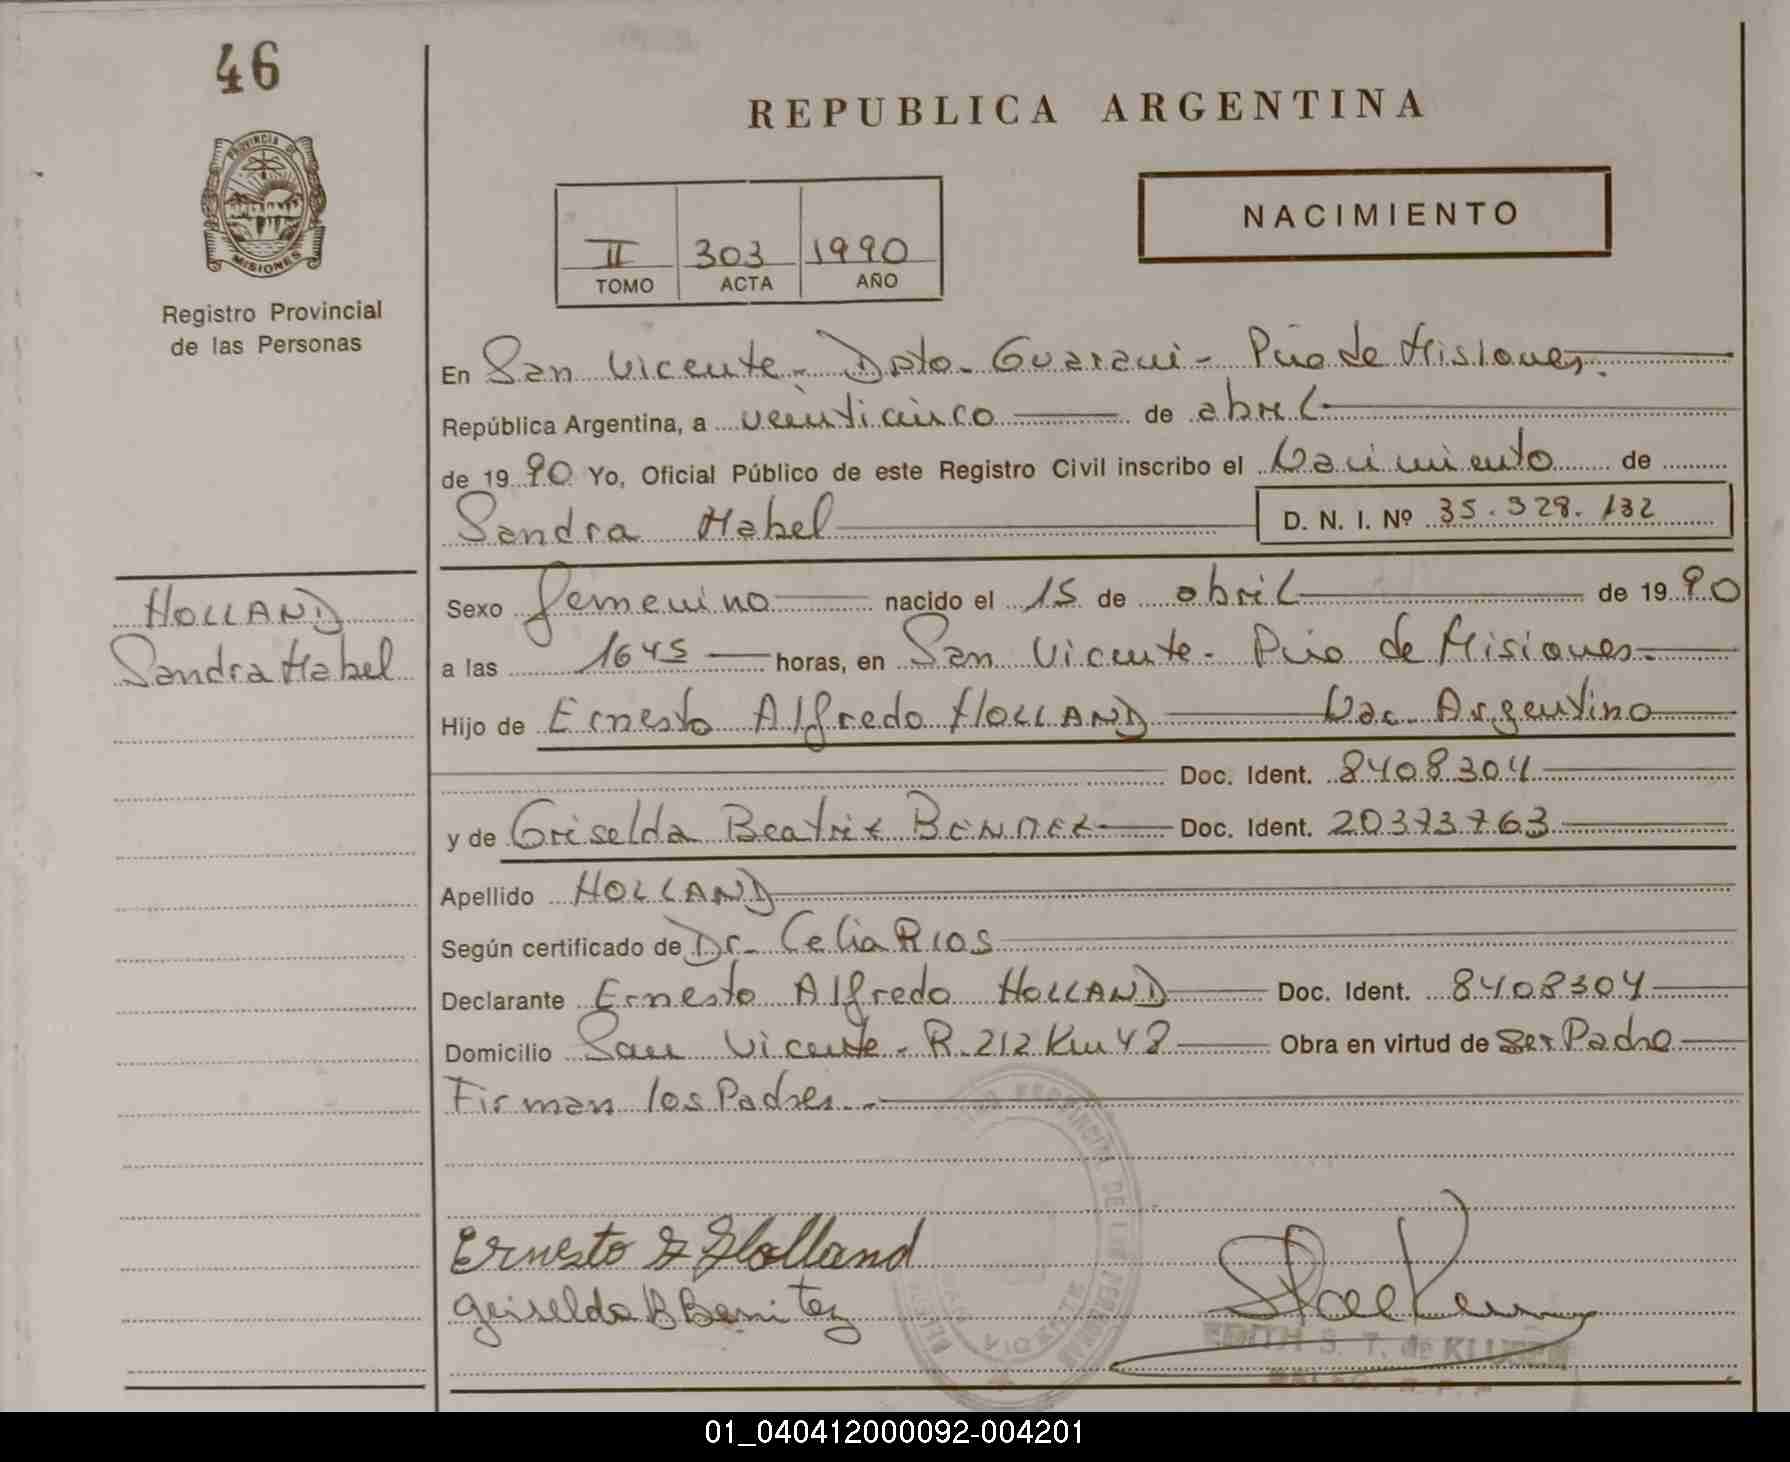 46
REPUBLICA ARGENTINA
PROVINCIA DE
MISIONES
Registro Provincial
de las Personas
II 303 1990
TOMO ACTA AÑO
NACIMIENTO
En San Vicente - Dpto. Guarani - Pcia de Misiones.
República Argentina, a veinticinco de abril
de 1990 Yo, Oficial Público de este Registro Civil inscribo el Nacimiento de
Sandra Mabel D. N. I. Nº 35.328.132
HOLLAND
Sandra Mabel
Sexo femenino nacido el 15 de abril de 1990
a las 1645 horas, en San Vicente - Pcia de Misiones.
Hijo de Ernesto Alfredo HOLLAND Nac. Argentino
Doc. Ident. 8408304
y de Griselda Beatriz Doc. Ident. 20373763
Apellido HOLLAND
Según certificado de Dr. Celia RIOS
Declarante Ernesto Alfredo HOLLAND Doc. Ident. 8408304
Domicilio San Vicente - R. 212 Km 48 Obra en virtud de Ser Padre
Firman los Padres.-
Ernesto A Holland
Griselda B Benitez
EDITH S. T. de
01_040412000092-004201